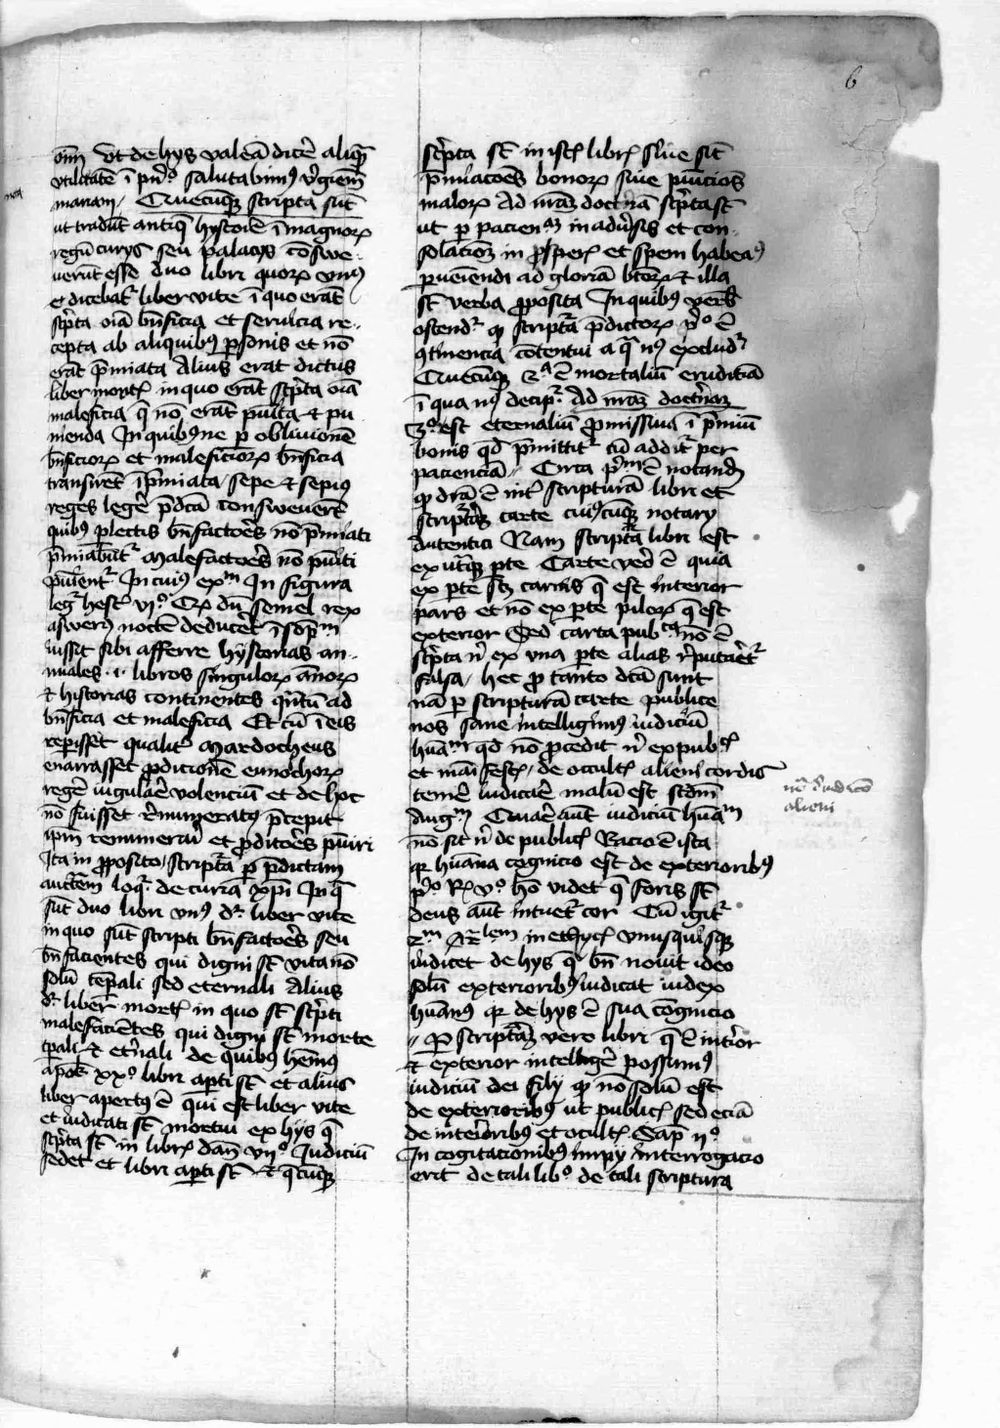 6
om̄ı Ut de hys valeā dicẽ aliq̄
utilitatē ī pn̄ᵒ salutabim⁹ v̄giēm
mariam / Quecūqꝫ scripta sūt
ut tradūt antiq̄ hystorie ī magnoꝝ
regū curys seu palacys cōswe-
verūt esse duo libri quoꝝ vn⁹
dicebat᷑ liber vite ī quo erāt
sc̄pta oīa bn̄ficia et seruicia re-
cepta ab aliquibus p̱sonis et nō
erāt p̄miata Alius erat dictus
liber mortꝭ in quo erāt sc̄pta oīa
maleficia q̄ no erāt pūita ⁊ pu
nienda In quibus ne p̱ oblivionē
bn̄ficioꝝ et maleficioꝝ bn̄ficia
transirēt īp̄miata / sepe ⁊ sepi⁹
reges legē p̄dcā consweuerēt
quib⁹ plectis bn̄factoēs nō p̄miati
p̄miabūt᷑ malefactoēs nō pūiti
pūirent᷑ In cui⁹ exᵐ In figura
leg᷑ hest᷑ viᵒ Qꝝ dū semel rex
aswer⁹ noctē deducēt īsōpᵐ
iussit sibi afferre hystorias an-
nuales .i. libros singuloꝝ ānoꝝ
⁊ historias continentes q̄ntū ad
bn̄ficia et maleficia Et cū ī eis
reperisset qualit᷑ Mardocheus
enarrasset ꝓdicionē eunochoꝝ
regē iugulaē volenciū et de hoc
nō fuisset r̄munerat⁹ p̄cepit
ip̄m remunerari et ꝓditoēs pūiri
Ita in ꝓposito / script᷑a p̱ p̄dictam
auctm̄ loq᷑ de curia xp̄i In q̄
sūt duo libri vn⁹ d᷑ liber vite
in quo sūt scripti bn̄factoēs seu
bn̄facientes qui digni sт̄ vita nō
solū tēp̱ali sed eternali Alius
d᷑ liber mortꝭ in quo sт̄ sc̄pti
malefaciētes qui digni sт̄ morte
tp̱ali ⁊ et̄nali de quib⁹ hēm⁹
apok̄ xxᵒ libri ap̱ti sт̄ et alius
liber apert⁹ ē qui est liber vite
et iudicati sт̄ mortui ex hys q̄
sc̄pta sт̄ in librꝭ dan̄ viiᵒ Iudiciū
sedet et libri ap̱ti sт̄ ⁊ q̄cūqꝫ
sc̄pta sт̄ in istꝭ librꝭ siue sit
p̄miacōes bonoꝝ siue puicios
maloꝝ Ad nr̄am doctn̄ā sc̄pta sт̄
ut p̱ pacien̄ᵃᵐ in adūsis et con-
solacōꝫ in ꝓsperꝭ et spem habeam⁹
p̱ueniendi ad gloriā btōꝝ ⁊ illa
sт̄ verba ꝓposita In quib⁹ verb̄
ostend᷑ qꝫ script᷑a p̄dictoꝝ pᵒ ē
9tinencia cōtentui a q̄ n⁹ exclud᷑
Quecūqꝫ 2ᵃ ē mortaliū eruditiā
ī qua n⁹ decip᷑ Ad nr̄aꝫ doctn̄aꝫ
3ᵒ est eternaliū ꝓmissiua ī p̄miū
bonis qd̄ p̄mittit᷑ cū addit᷑ per
pacienciā // Circa p̄mᵐ ē notandꝫ
qꝫ dr̄a ē int᷑ scripturā libri et
script᷑aꝫ carte cui⁹cūqꝫ notary
autentici Nam script᷑a libri est
ex utqꝫ p̱te Carte vēo ē quia
ex p̱te sꝫ carnis q̄ est interior
pars et nō ex p̱te piloꝝ q̄ est
exterior Sed carta pubᶜᵃ nō ē
sc̄pta n̄ ex vna p̱te alias r̄putaēt᷑
falsa / hec ꝓ tanto dcā sunt
nā p̱ scripturā carte publice
nos sane intelligim⁹ iudiciū
huāᵐ qd̄ nō ꝓcedit n̄ ex pubᶜꝭ
et māifestꝭ / de occultꝭ alieni cordis
temē iudicaē malū est scdm̄
Augᵐ Cuiaē aūt iudiciū huāᵐ
nō sit n̄ de publicꝭ Racio ē ista
qꝛ huāna cognicio est de exteriorib⁹
pᵒ Rꝭ vᵒ hō videt q̄ foris sт̄
deus aūt intuet᷑ cor Cū igit᷑
2ᵐ Ar᷑lem in ethycꝭ vnusquisqꝫ
iudicet de hys q̄ bn̄ nouit ideo
solū exteriorib⁹ iudicat iudex
huān⁹ qꝛ de hys ē sua cognicio
// P̱ script᷑aꝫ vero libri q̄ ē int᷑ior
⁊ exterior intelligē possum⁹
iudiciū dei filij qꝫ no solū est
de exteriorib⁹ ut publicꝭ sed eciā
de interioribus et ocultꝭ Sap̄ iᵒ
In cogitacionib⁹ impy interrogacio
erit de tali libᵒ de tali scriptura
alieni